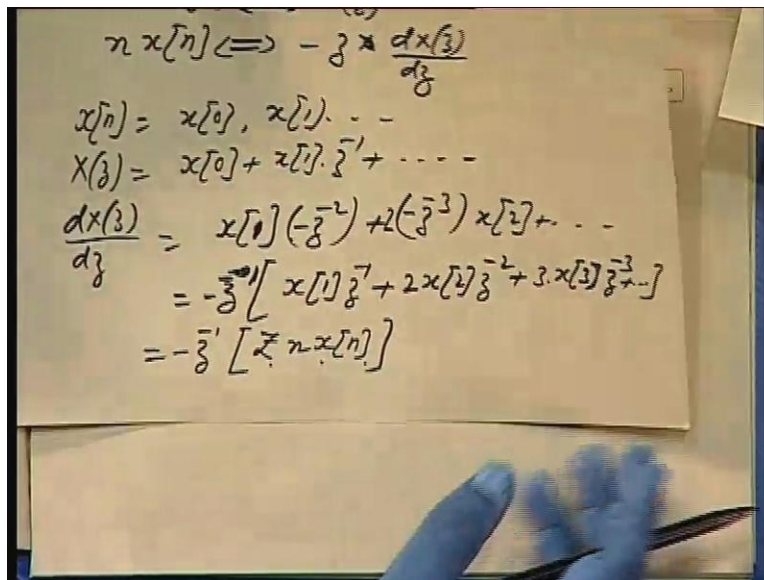 n x[n] <=> - z * dX(z)/dz
x[n] = x[0], x[1]. - - -
X(z) = x[0] + x[1]. z^-1 + - - - -
dX(z)/dz = x[1](-z^-2) + 2(-z^-3) x[2] + - - -
= - z^-1 [ x[1] z^-1 + 2x[2] z^-2 + 3.x[3] z^-3 + -- ]
= - z^-1 [ Z n x[n] ]